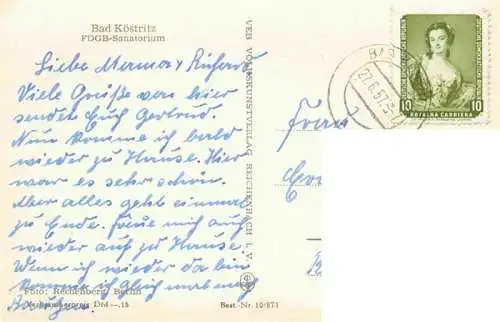 Bad Köstritz
FDGB-Sanatorium
Liebe Mama & Richard
Viele Grüße von hier
sendet Euch Gertrud.
Nun komme ich bald
wieder zu Hause. Hier
war es sehr schön.
Aber alles geht einmal
zu Ende. Freue mich auch
wieder auf zu Hause.
Wenn ich wieder da bin
komme ich gleich mal
Foto: Rechenberg, Berlin
Verbraucherpreis DM -.15
Best.-Nr. 10/871
VEB VOLKSKUNSTVERLAG REICHENBACH I. V.
Frau
BAD
27.6.57
DEUTSCHE DEMOKRATISCHE REPUBLIK
10
ROSALBA CARRIERA
10